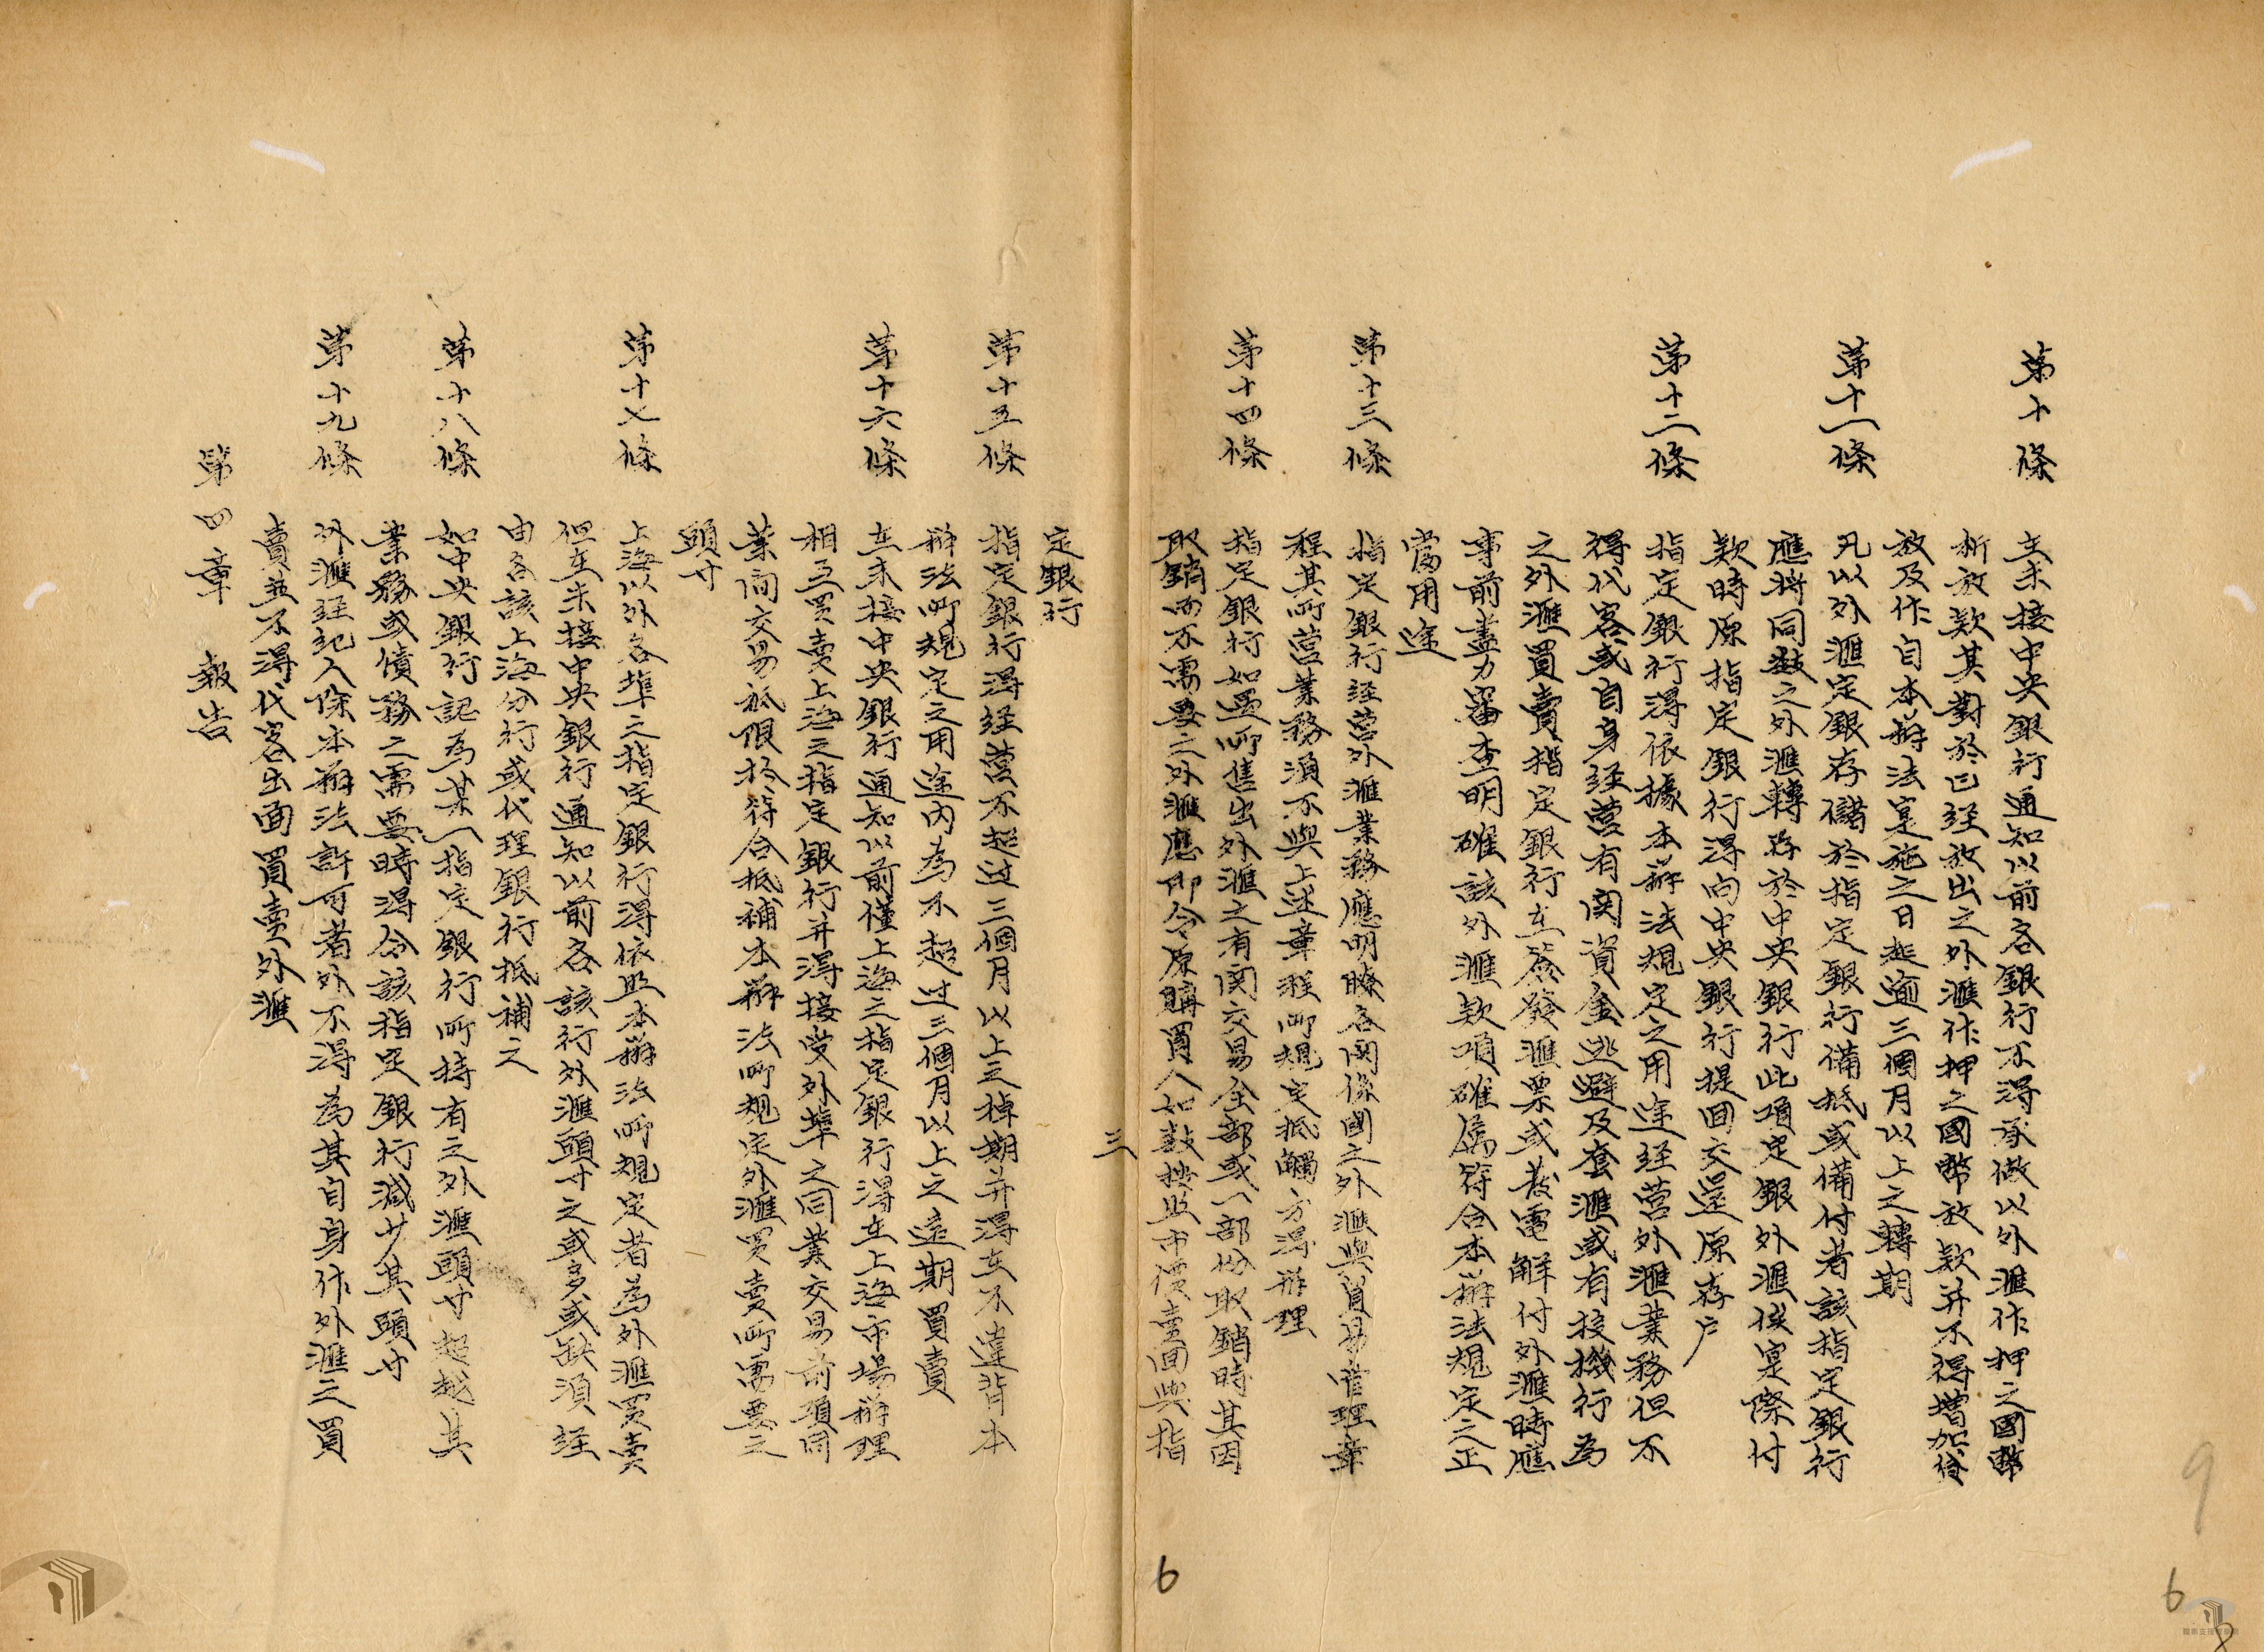 第十條
在未接中央銀行通知以前各銀行不得承做以外滙作押之國幣
新放款其對於已經放出之外滙作押之國幣放款并不得增加貸
放及作自本辦法寔施之日起逾三個月以上之轉期
第十一條
凡以外滙定銀存儲於指定銀行備抵或備付者該指定銀行
應將同数之外滙轉存於中央銀行此項定銀外滙俟寔際付
款時原指定銀行得向中央銀行提回交還原存户
第十二條
指定銀行得依據本辦法規定之用途经营外滙業務但不
得代客或自身经营有関資金逃避及套滙或有投機行為
之外滙買賣指定銀行在簽發滙票或發電解付外滙時應
事前盡力審查明確該外滙款項確属符合本辦法規定之正
當用途
第十三條
指定銀行经营外滙業務應明瞭各関係國之外滙與貿易管理章
程其所营業務須不與上述章程所規定抵觸方得辦理
第十四條
指定銀行如遇所售出外滙之有関交易全部或一部份取銷時其因
取銷而不需要之外滙應即令原購買人如数按照市價賣回與指
三
6
定銀行
第十五條
指定銀行得经营不超过三個月以上之掉期并得在不違背本
辦法所規定之用途内為不超过三個月以上之遠期買賣
第十六條
在未接中央銀行通知以前僅上海之指定銀行得在上海市場辦理
相互买賣上海之指定銀行并得接受外埠之同業交易前項同
業间交易祇限於符合抵補本辦法所規定外滙买賣所需要之
頭寸
第十七條
上海以外各埠之指定銀行得依照本辦法所規定者為外滙買賣
但在未接中央銀行通知以前各該行外滙頭寸之或多或缺須经
由各該上海分行或代理銀行抵補之
第十八條
如中央銀行認為某一指定銀行所持有之外滙頭寸超越其
業務或債務之需要時得令該指定銀行減少其頭寸
第十九條
外滙经纪人除本辦法許可者外不得為其自身作外滙之買
賣並不得代客出面買賣外滙
第四章 報告
9
6